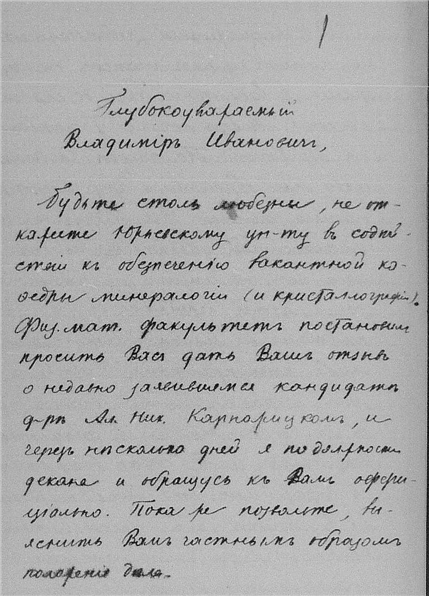 1
Глубокоуважаемый
Владиміръ Ивановичъ,
Будьте столь любезны, не от-
кажите Юрьевскому ун-ту въ содѣй-
ствіи къ обезпеченію вакантной ка-
ѳедры минералогіи (и кристаллографіи).
Физ. мат. факультетъ постановилъ
просить Васъ дать Вашъ отзывъ
о недавно заявившемся кандидатѣ
д-рѣ Ал. Ник. Карножицкомъ, и
черезъ нѣсколько дней я по должности
декана и обращусь къ Вамъ оффи-
ціально. Пока же позвольте, вы-
яснить Вамъ частнымъ образомъ
положеніе дѣла.